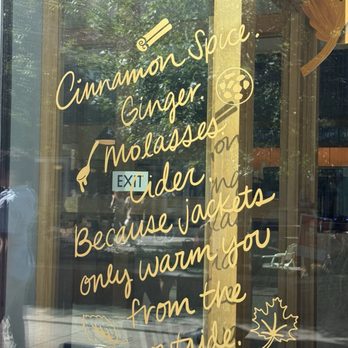 Cinnamon Spice.
Ginger.
Molasses
EXIT
Cider
Because jackets
only warm you
from the